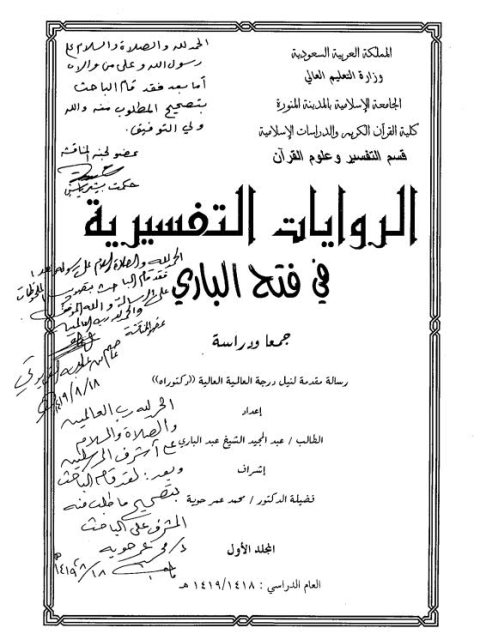 المملكة العربية السعودية
وزارة التعليم العالي
الجامعة الإسلامية بالمدينة المنورة
كلية القرآن الكريم والدراسات الإسلامية
قسم التفسير وعلوم القرآن
الحمد لله والصلاة والسلام على
رسول الله وعلى من والاه
أما بعد فقد قام الباحث
بتصحيح المطلوب منه والله
ولي التوفيق.
عضو لجنة المناقشة
حكمت بشير ياسين
الروايات التفسيرية
في فتح الباري
جمعا ودراسة
الحمد لله والصلاة والسلام على رسوله
فقد قام الباحث
على الرسالة والله الموفق
والحمد لله رب العالمين
عضو المناقشة
١٤١٩/٨/١٨
رسالة مقدمة لنيل درجة العالمية العالية ((دكتوراه))
إعداد
الطالب / عبد المجيد الشيخ عبد الباري
إشراف
فضيلة الدكتور / محمد عمر حوية
الحمد لله رب العالمين
والصلاة والسلام
على أشرف المرسلين
وبعد: لقد قام الباحث
بتصحيح ما طلب منه
المشرف على الباحث
د/ محمد عمر حويه
١٤١٩/٨/١٨هـ
المجلد الأول
العام الدراسي : ١٤١٩/١٤١٨ هـ